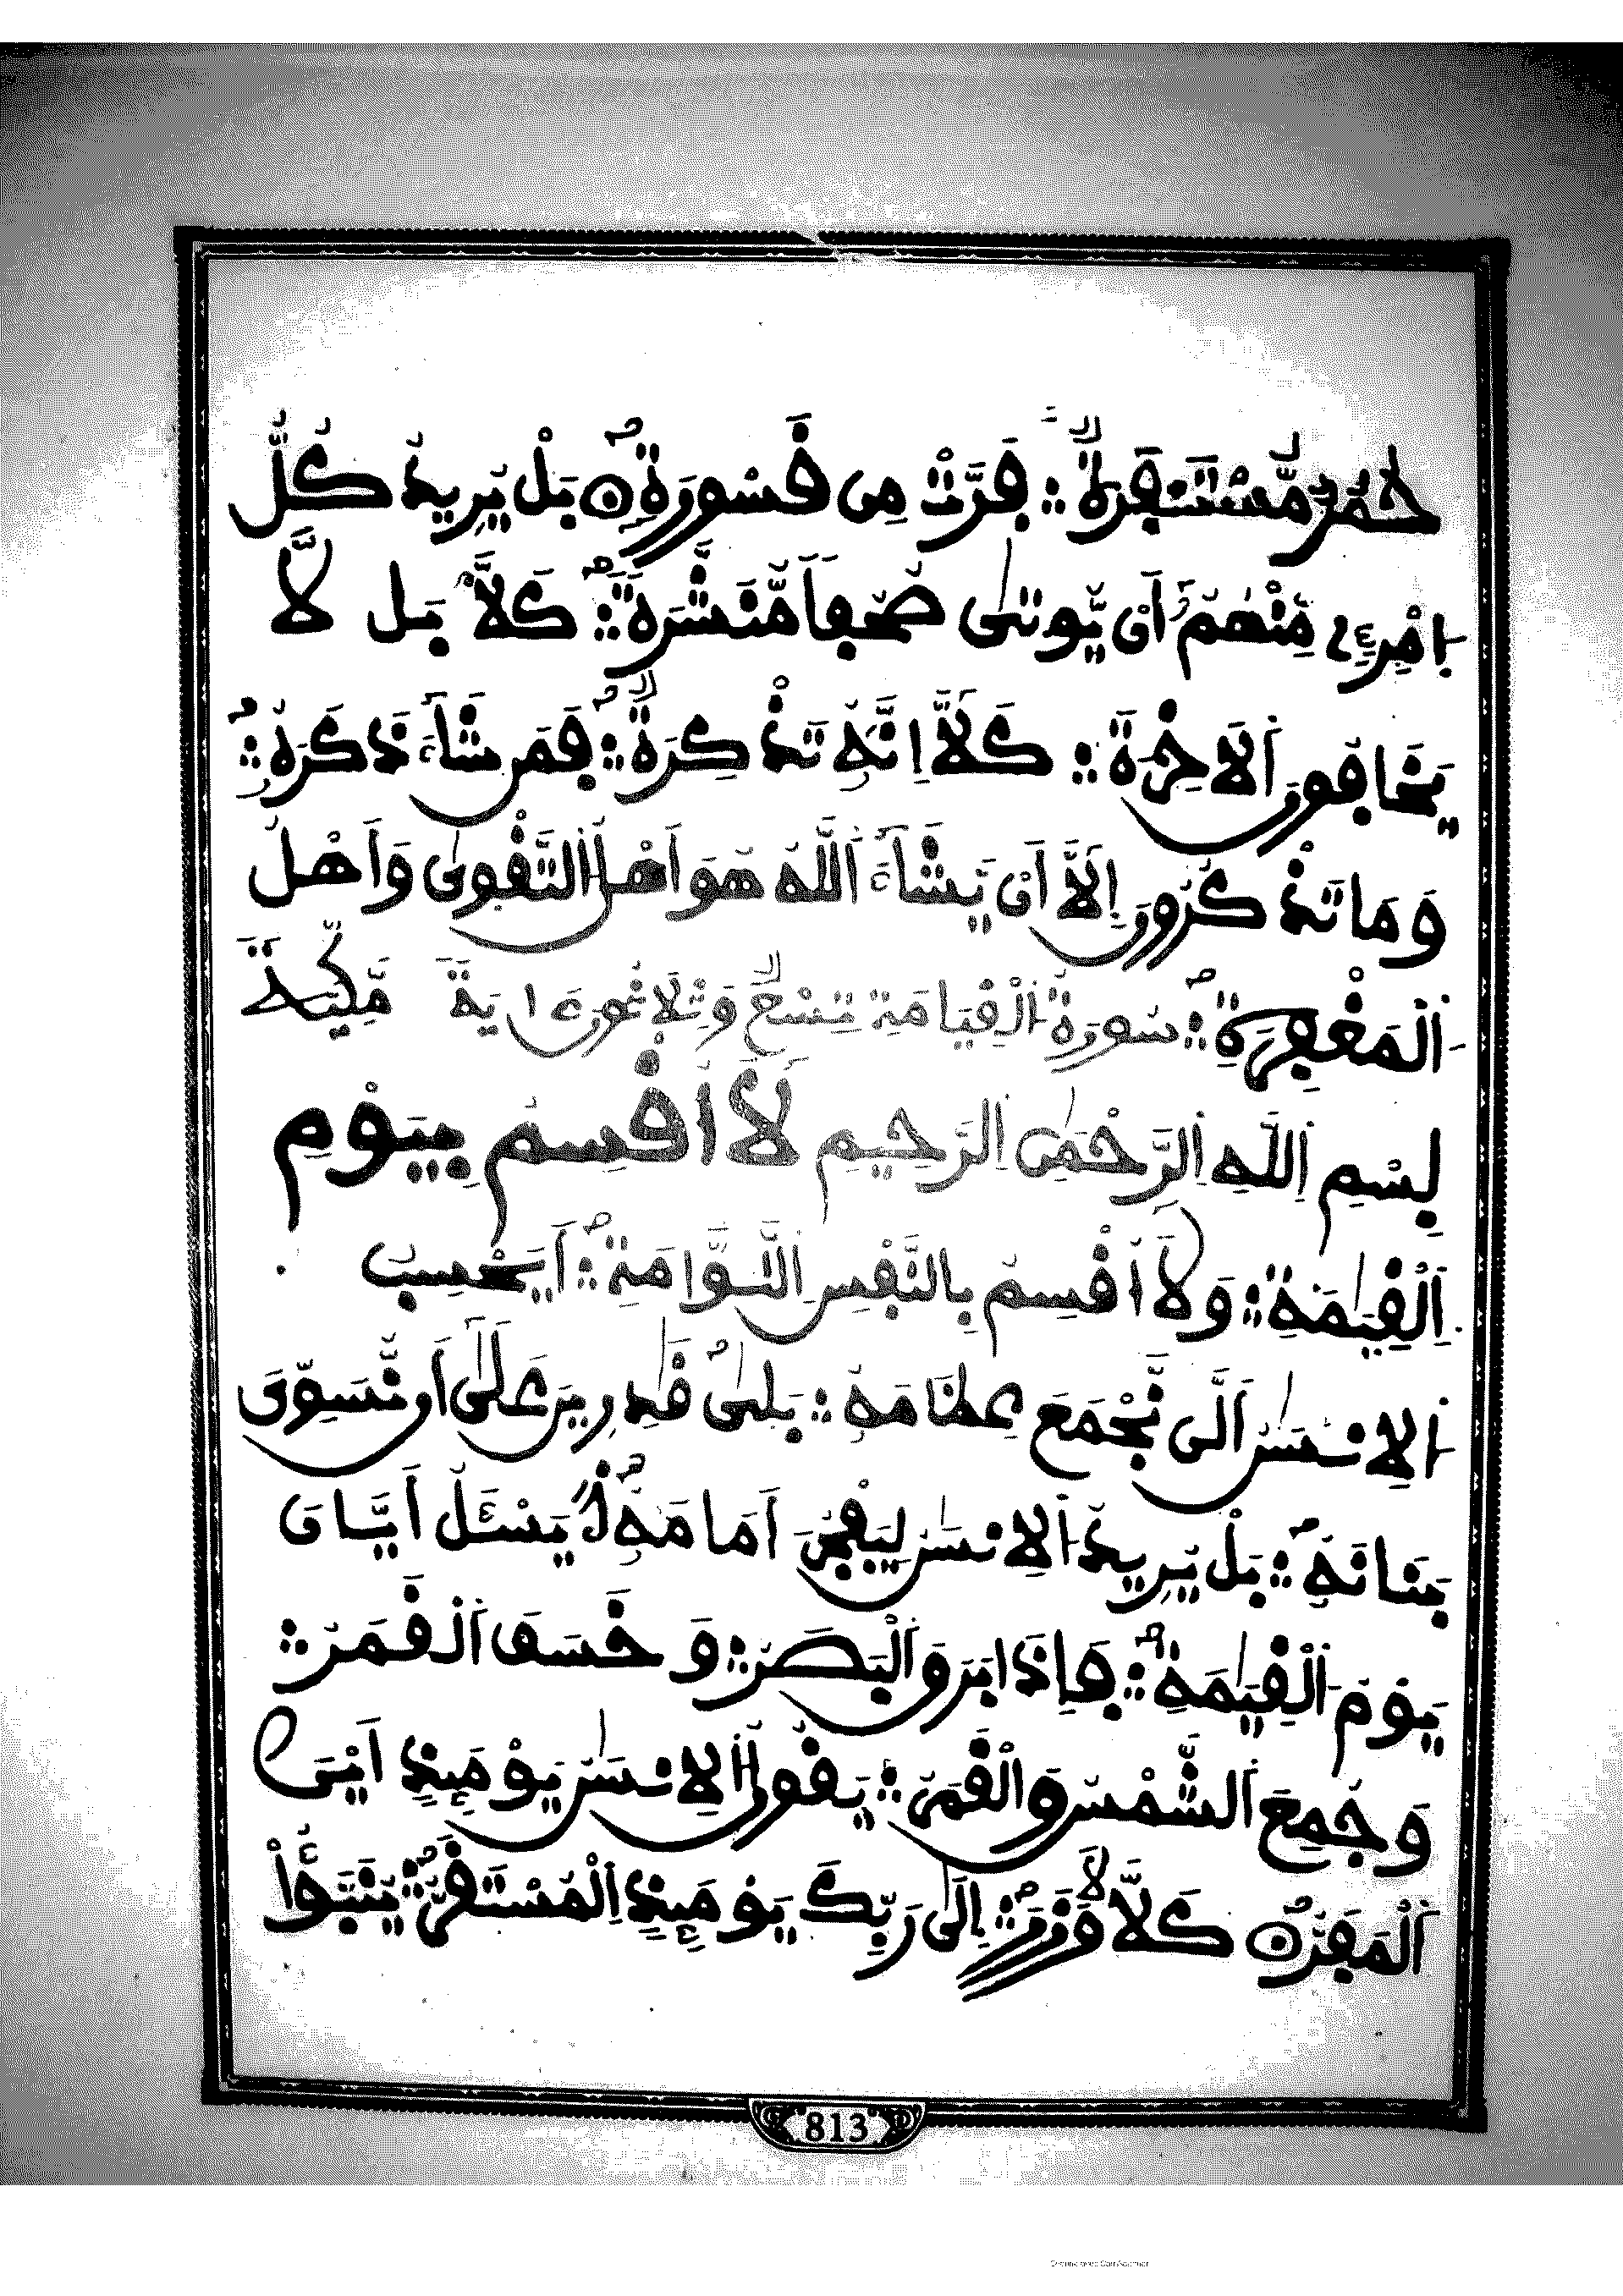 حُمُرٌ مُّسْتَنفَرَةٌ ۞ فَرَّتْ مِن قَسْوَرَةٍ ۞ بَلْ يُرِيدُ كُلُّ
اِمْرِئٍ مِّنْهُمْ أَن يُّوتىٰ صُحُفاً مُّنَشَّرَةً ۞ كَلَّا بَل لَّا
يَخَافُونَ اَلَاخِرَةَ ۞ كَلَّا إِنَّهُ تَذْكِرَةٌ ۞ فَمَن شَآءَ ذَكَرَهُ ۞
وَمَا تَذْكُرُونَ إِلَّا أَن يَّشَآءَ اَللَّهُ هُوَ أَهْلُ اُلتَّقْوىٰ وَأَهْلُ
اَلْمَغْفِرَةِ ۞ سُورَةُ اَلْقِيَامَةِ تِسْعٌ وَثَلَاثُونَ ءَايَةً مَكِّيَّةٌ
بِسْمِ اِللَّهِ اِلرَّحْمٰنِ اِلرَّحِيمِ لَا أُقْسِمُ بِيَوْمِ
اِلْقِيٰمَةِ ۞ وَلَا أُقْسِمُ بِالنَّفْسِ اِللَّوَّامَةِ ۞ أَيَحْسِبُ
اُلِانسَٰنُ أَلَّن نَّجْمَعَ عِظَامَهُ ۞ بَلىٰ قَٰدِرِينَ عَلىٰ أَن نُّسَوِّيَ
بَنَانَهُ ۞ بَلْ يُرِيدُ اُلِانسَٰنُ لِيَفْجُرَ أَمَامَهُ ۞ يَسْـَٔلُ أَيَّانَ
يَوْمُ اُلْقِيٰمَةِ ۞ فَإِذَا بَرَقَ اَلْبَصَرُ ۞ وَخَسَفَ اَلْقَمَرُ ۞
وَجُمِعَ اَلشَّمْسُ وَالْقَمَرُ ۞ يَقُولُ اُلِانسَٰنُ يَوْمَئِذٍ أَيْنَ
اَلْمَفَرُّ ۞ كَلَّا لَا وَزَرَ ۞ إِلىٰ رَبِّكَ يَوْمَئِذٍ اِلْمُسْتَقَرُّ ۞ يُنَبَّؤُاْ
813